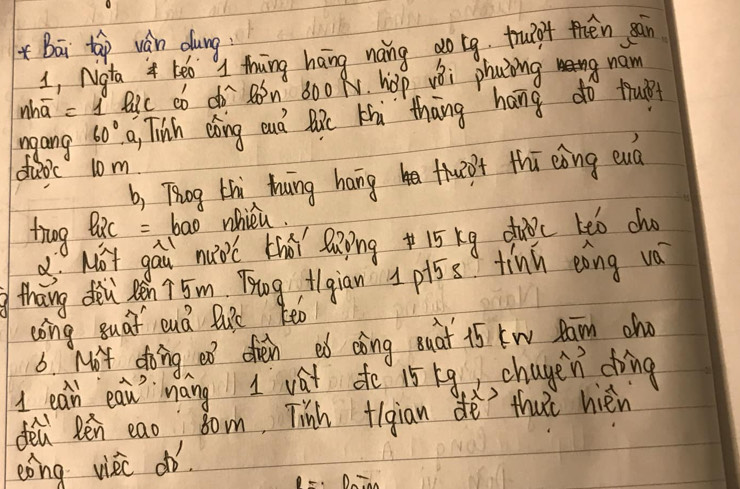 * Bài tập vận dụng:
1, Ngta kéo 1 thùng hàng nặng 20 kg. trượt trên sàn
nhà = 1 lực có độ lớn 300 N. hợp với phương nằm
ngang 60°. a, Tính công của lực khi thùng hàng đó trượt
được 10 m.
b, Trog khi thùng hàng trượt thì công của
trọg lực = bao nhiêu.
2. Một gầu nước khối lượng 15 kg được kéo cho
thẳng đều lên ↑ 5m. Trog t/gian 1 p15s. tính công và
công suất của lực kéo
3. Một động cơ điện có công suất 15 kw làm cho
1 cần cẩu nâng 1 vật đc 15 kg, chuyển động
đều lên cao 30m. Tính t/gian để thực hiện
công việc đó.